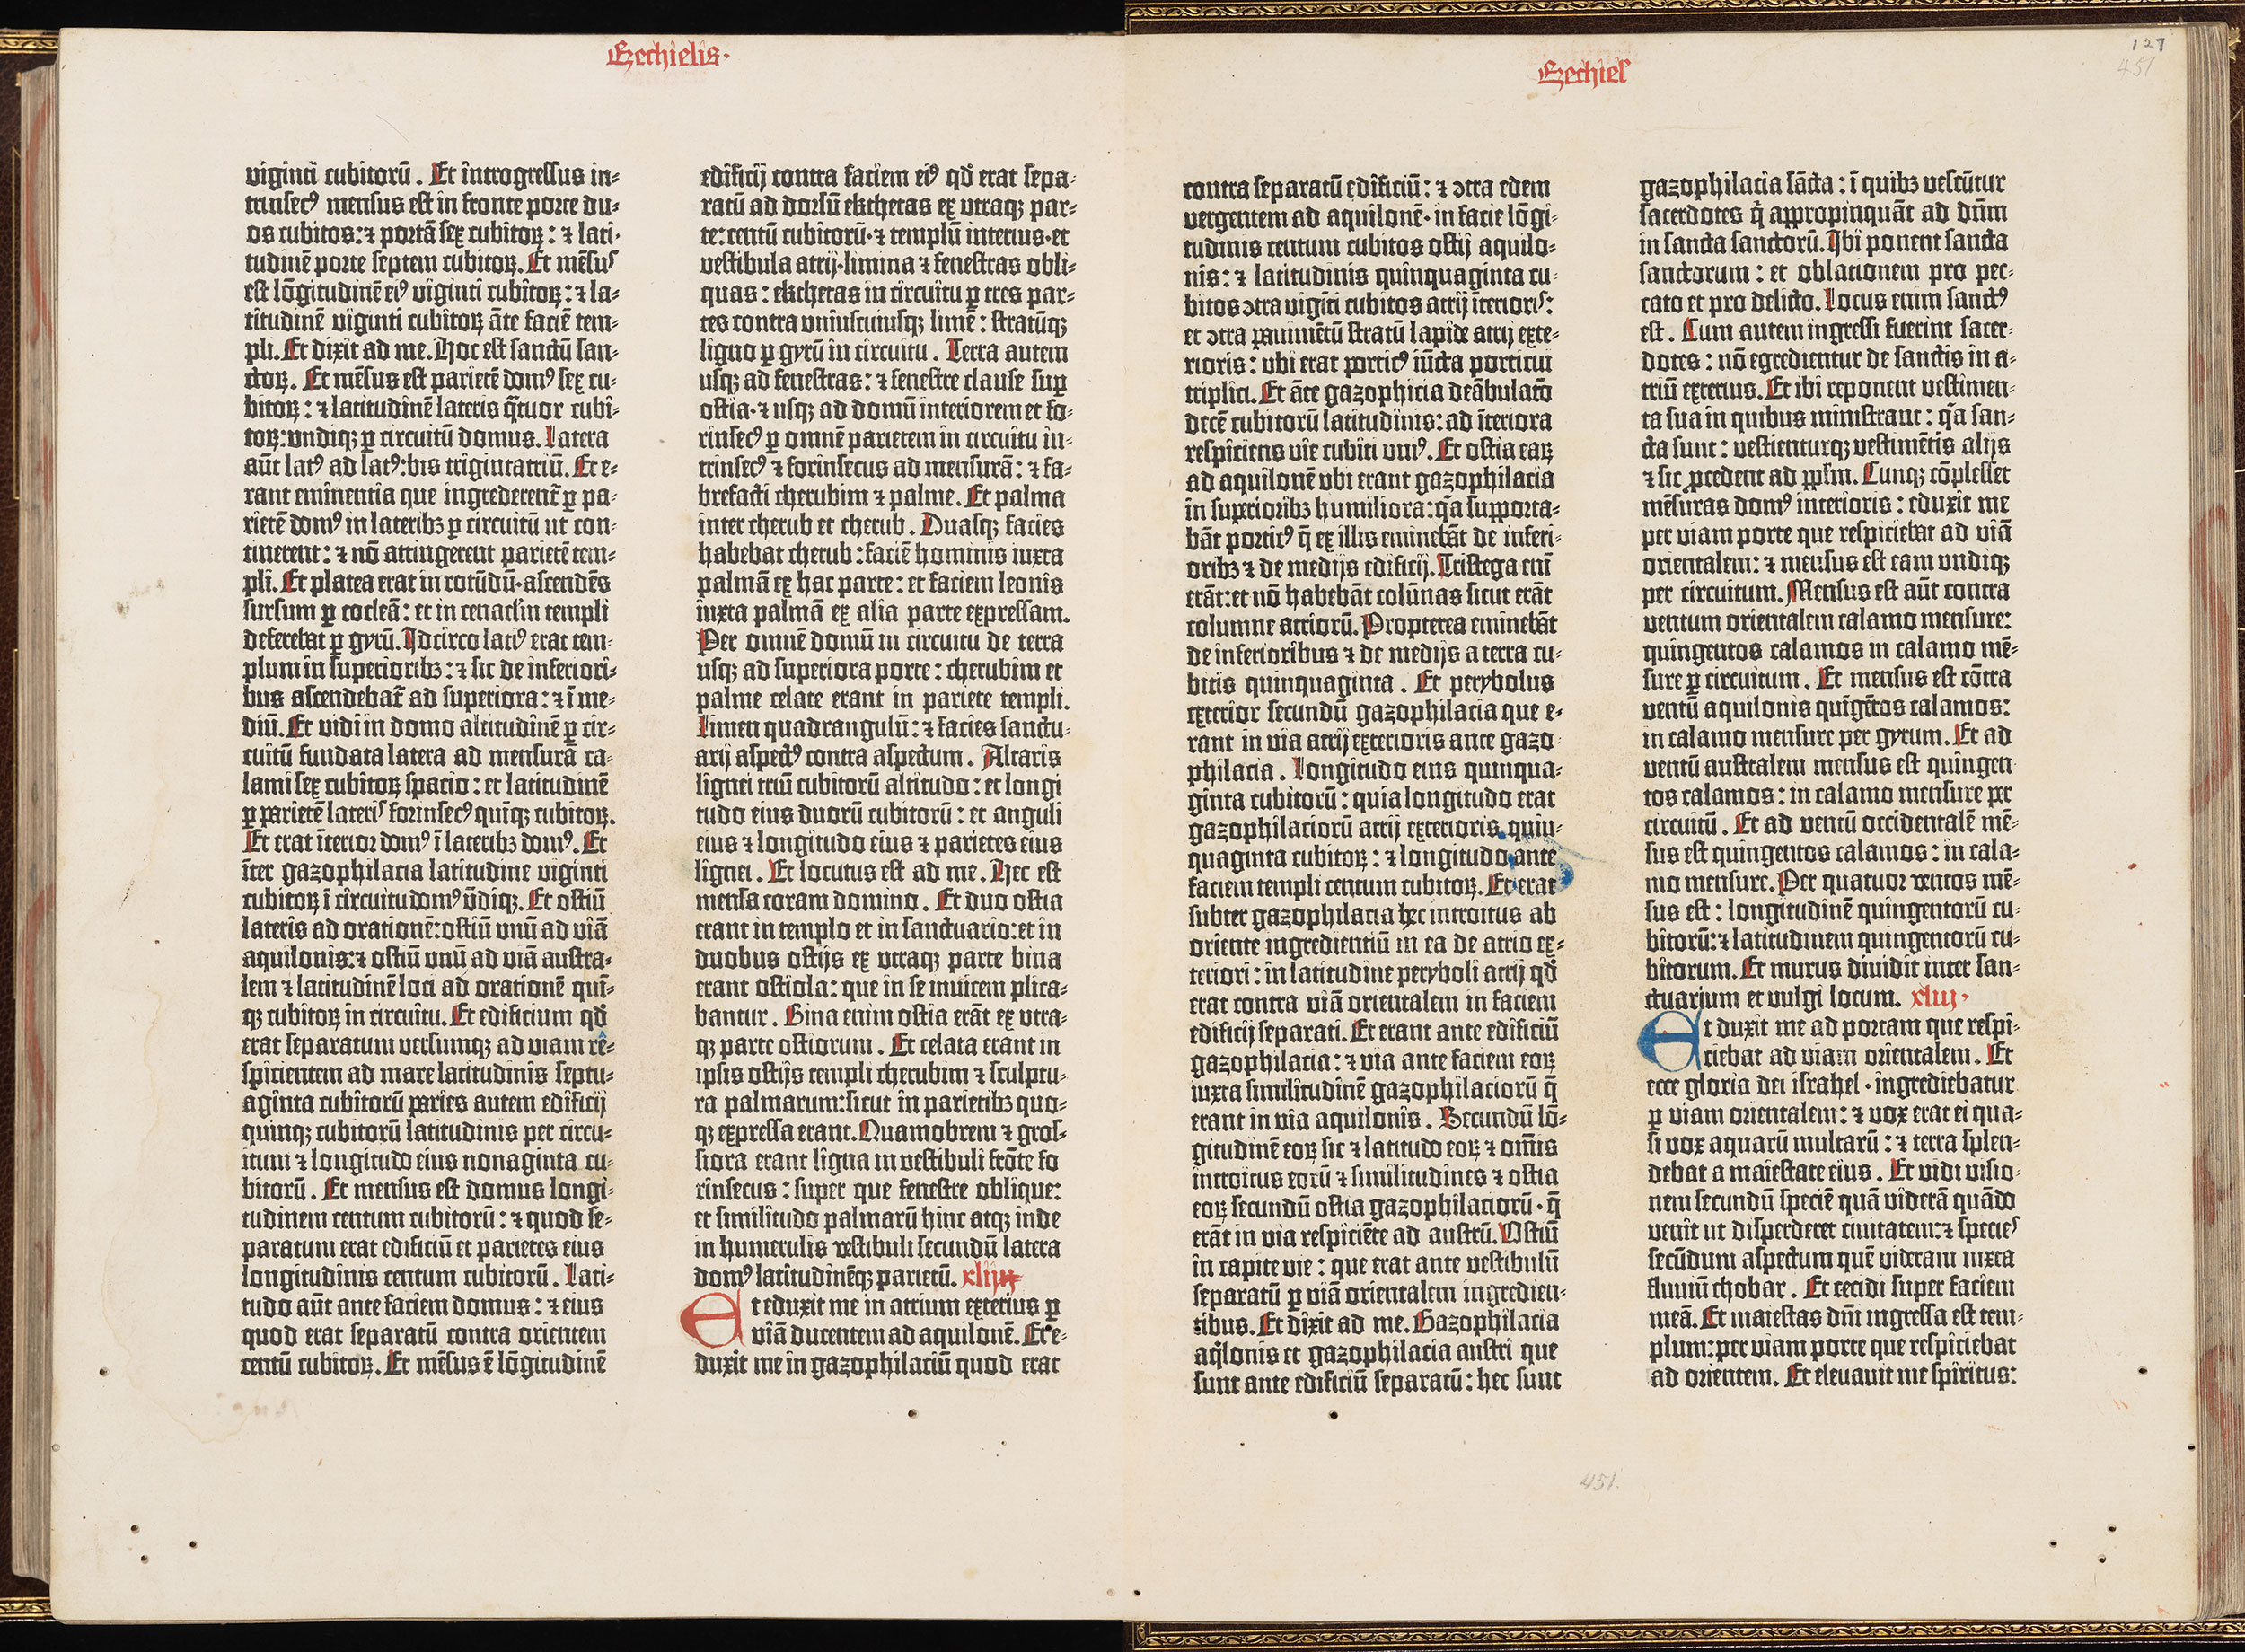 Ezechielis·
viginti cubitorū. Et introgressus in⸗
trinsecꝰ mensus est in fronte porte du⸗
os cubitos: ⁊ portā sex cubitoꝝ: ⁊ lati⸗
tudinē porte septem cubitoꝝ. Et mēsus
est lōgitudinē eiꝰ viginti cubitoꝝ: ⁊ la⸗
titudinē viginti cubitoꝝ āte faciē tem⸗
pli. Et dixit ad me. Hoc est sanctū san⸗
ctoꝝ. Et mēsus est parietē domꝰ sex cu⸗
bitoꝝ: ⁊ latitudinē lateris q̄tuor cubi⸗
toꝝ: vndiqꝫ ꝑ circuitū domus. Latera
aūt latꝰ ad latꝰ: bis trigintatriū. Et e⸗
rant eminentia que ingrederent̄ ꝑ pa⸗
rietē domꝰ in lateribꝫ ꝑ circuitū ut con⸗
tinerent: ⁊ nō attingerent parietē tem⸗
pli. Et platea erat in rotūdū· ascendēs
sursum ꝑ cocleā: et in cenacl'm templi
deferebat ꝑ gyrū. Idcirco latiꝰ erat tem⸗
plum in superioribꝫ: ⁊ sic de inferiori⸗
bus ascendebat̄ ad superiora: ⁊ ī me⸗
diū. Et vidi in domo altitudinē ꝑ cir⸗
cuitū fundata latera ad mensurā ca⸗
lami sex cubitoꝝ spacio: et latitudinē
ꝑ parietē lateris forinsecꝰ quīqꝫ cubitoꝝ.
Et erat īterior domꝰ ī lateribꝫ domꝰ. Et
īter gazophilacia latitudine viginti
cubitoꝝ ī circuitu domꝰ ūdiqꝫ. Et ostiū
lateris ad orationē: ostiū vnū ad viā
aquilonis: ⁊ ostiū vnū ad viā austra⸗
lem ⁊ latitudinē loci ad orationē quī⸗
qꝫ cubitoꝝ in circuitu. Et edificium qđ
erat separatum versumqꝫ ad viam re⸗
spicientem ad mare latitudinis septu⸗
aginta cubitorū paries autem edificij
quinqꝫ cubitorū latitudinis per circu⸗
itum ⁊ longitudo eius nonaginta cu⸗
bitorū. Et mensus est domus longi⸗
tudinem centum cubitorū: ⁊ quod se⸗
paratum erat edificiū et parietes eius
longitudinis centum cubitorū. Lati⸗
tudo aūt ante faciem domus: ⁊ eius
quod erat separatū contra orientem
centū cubitoꝝ. Et mēsus ē lōgitudinē
edificij contra faciem eiꝰ qđ erat sepa⸗
ratū ad dorsū ekthetas ex vtraqꝫ par⸗
te: centū cubitorū· ⁊ templū interius· et
vestibula atrij· limina ⁊ fenestras obli⸗
quas: ekthetas in circuitu ꝑ tres par⸗
tes contra vniuscuiusqꝫ limē: stratūqꝫ
ligno ꝑ gyrū in circuitu. Terra autem
usqꝫ ad fenestras: ⁊ fenestre clause suꝑ
ostia· ⁊ usqꝫ ad domū interiorem et fo⸗
rinsecꝰ ꝑ omnē parietem in circuitu in⸗
trinsecꝰ ⁊ forinsecus ad mensurā: ⁊ fa⸗
brefacti cherubim ⁊ palme. Et palma
inter cherub et cherub. Duasqꝫ facies
habebat cherub: faciē hominis iuxta
palmā ex hac parte: et faciem leonis
iuxta palmā ex alia parte expressam.
Per omnē domū in circuitu de terra
usqꝫ ad superiora porte: cherubim et
palme celate erant in pariete templi.
Limen quadrangulū: ⁊ facies sanctu⸗
arij aspectꝰ contra aspectum. Altaris
lignei triū cubitorū altitudo: et longi
tudo eius duorū cubitorū: et anguli
eius ⁊ longitudo eius ⁊ parietes eius
lignei. Et locutus est ad me. Hec est
mensa coram domino. Et duo ostia
erant in templo et in sanctuario: et in
duobus ostijs ex vtraqꝫ parte bina
erant ostiola: que in se inuicem plica⸗
bantur. Bina enim ostia erāt ex vtra⸗
qꝫ parte ostiorum. Et celata erant in
ipsis ostijs templi cherubim ⁊ sculptu⸗
ra palmarum: sicut in parietibꝫ quo⸗
qꝫ expressa erant. Quamobrem ⁊ gros⸗
siora erant ligna in vestibuli frōte fo
rinsecus: super que fenestre oblique:
et similitudo palmarū hinc atqꝫ inde
in humerulis vestibuli secundū latera
domꝰ latitudinēqꝫ parietū. xlij
Et eduxit me in atrium exterius ꝑ
viā ducentem ad aquilonē. Et e⸗
duxit me in gazophilaciū quod erat
Ezechiel'
127
451
contra separatū edificiū: ⁊ ꝯtra edem
vergentem ad aquilonē· in facie lōgi⸗
tudinis centum cubitos ostij aquilo⸗
nis: ⁊ latitudinis quinquaginta cu⸗
bitos ꝯtra vigīti cubitos atrij īterioris:
et ꝯtra pauimētū stratū lapide atrij exte⸗
rioris: vbi erat porticꝰ iūcta porticui
triplici. Et āte gazophicia deābulatō
decē cubitorū latitudinis: ad īteriora
respiciens vie cubiti vniꝰ. Et ostia eaꝝ
ad aquilonē vbi erant gazophilacia
in superioribꝫ humiliora: q̄a supporta⸗
bāt porticꝰ q̄ ex illis eminebāt de inferi⸗
oribꝫ ⁊ de medijs edificij. Tristega enī
erāt: et nō habebāt colūnas sicut erāt
columne atriorū. Propterea eminebāt
de inferioribus ⁊ de medijs a terra cu⸗
bitis quinquaginta. Et perybolus
exterior secundū gazophilacia que e⸗
rant in via atrij exterioris ante gazo⸗
philacia. Longitudo eius quinqua⸗
ginta cubitorū: quia longitudo erat
gazophilaciorū atrij exterioris quin⸗
quaginta cubitoꝝ: ⁊ longitudo ante
faciem templi centum cubitoꝝ. Et erat
subter gazophilacia hec introitus ab
oriente ingredientiū in ea de atrio ex⸗
teriori: in latitudine peryboli atrij qđ
erat contra viā orientalem in faciem
edificij separati. Et erant ante edificiū
gazophilacia: ⁊ via ante faciem eoꝝ
iuxta similitudinē gazophilaciorū q̄
erant in via aquilonis. Secundū lō⸗
gitudinē eoꝝ sic ⁊ latitudo eoꝝ ⁊ om̄is
introitus eorū ⁊ similitudines ⁊ ostia
eoꝝ secundū ostia gazophilaciorū· q̄
erāt in via respiciēte ad austrū. Ostiū
in capite vie: que erat ante vestibulū
separatū ꝑ viā orientalem ingredien⸗
tibus. Et dixit ad me. Gazophilacia
aq̄lonis et gazophilacia austri que
sunt ante edificiū separatū: hec sunt
gazophilacia sācta: ī quibꝫ vescūtur
sacerdotes q̄ appropinquāt ad dn̄m
in sancta sanctorū. Ibi ponent sancta
sanctorum: et oblationem pro pec⸗
cato et pro delicto. Locus enim sanctꝰ
est. Cum autem ingressi fuerint sacer⸗
dotes: nō egredientur de sanctis in a⸗
triū exterius. Et ibi reponent vestimen⸗
ta sua in quibus ministrant: q̄a san⸗
cta sunt: vestienturqꝫ vestimētis alijs
⁊ sic ꝓcedent ad ppl'm. Cunqꝫ cōplesset
mēsuras domꝰ interioris: eduxit me
per viam porte que respiciebat ad viā
orientalem: ⁊ mensus est eam vndiqꝫ
per circuitum. Mensus est aūt contra
ventum orientalem calamo mensure:
quingentos calamos in calamo mē⸗
sure ꝑ circuitum. Et mensus est cōtra
ventū aquilonis quīgētos calamos:
in calamo mensure per gyrum. Et ad
ventū australem mensus est quingen
tos calamos: in calamo mensure per
circuitū. Et ad ventū occidentalē mē⸗
sus est quingentos calamos: in cala⸗
mo mensure. Per quatuor ventos mē⸗
sus est: longitudinē quingentorū cu⸗
bitorū: ⁊ latitudinem quingentorū cu⸗
bitorum. Et murus diuidit inter san⸗
ctuarium et vulgi locum. xliij·
Et duxit me ad portam que respi⸗
ciebat ad viam orientalem. Et
ecce gloria dei israhel· ingrediebatur
ꝑ viam orientalem: ⁊ vox erat ei qua⸗
si vox aquarū multarū: ⁊ terra splen⸗
debat a maiestate eius. Et vidi visio⸗
nem secundū speciē quā viderā quādo
venit ut disperderet ciuitatem: ⁊ species
secūdum aspectum quē videram iuxta
fluuiū chobar. Et cecidi super faciem
meā. Et maiestas dn̄i ingressa est tem⸗
plum: per viam porte que respiciebat
ad orientem. Et eleuauit me spiritus:
451.